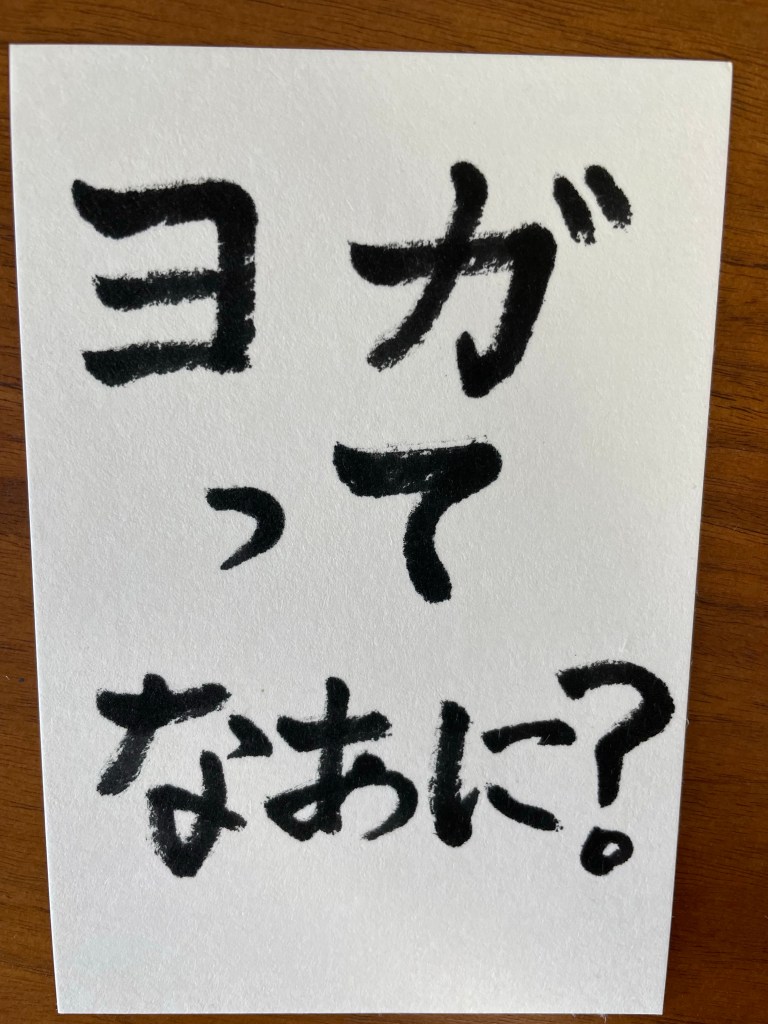 ヨガ
って
なあに?